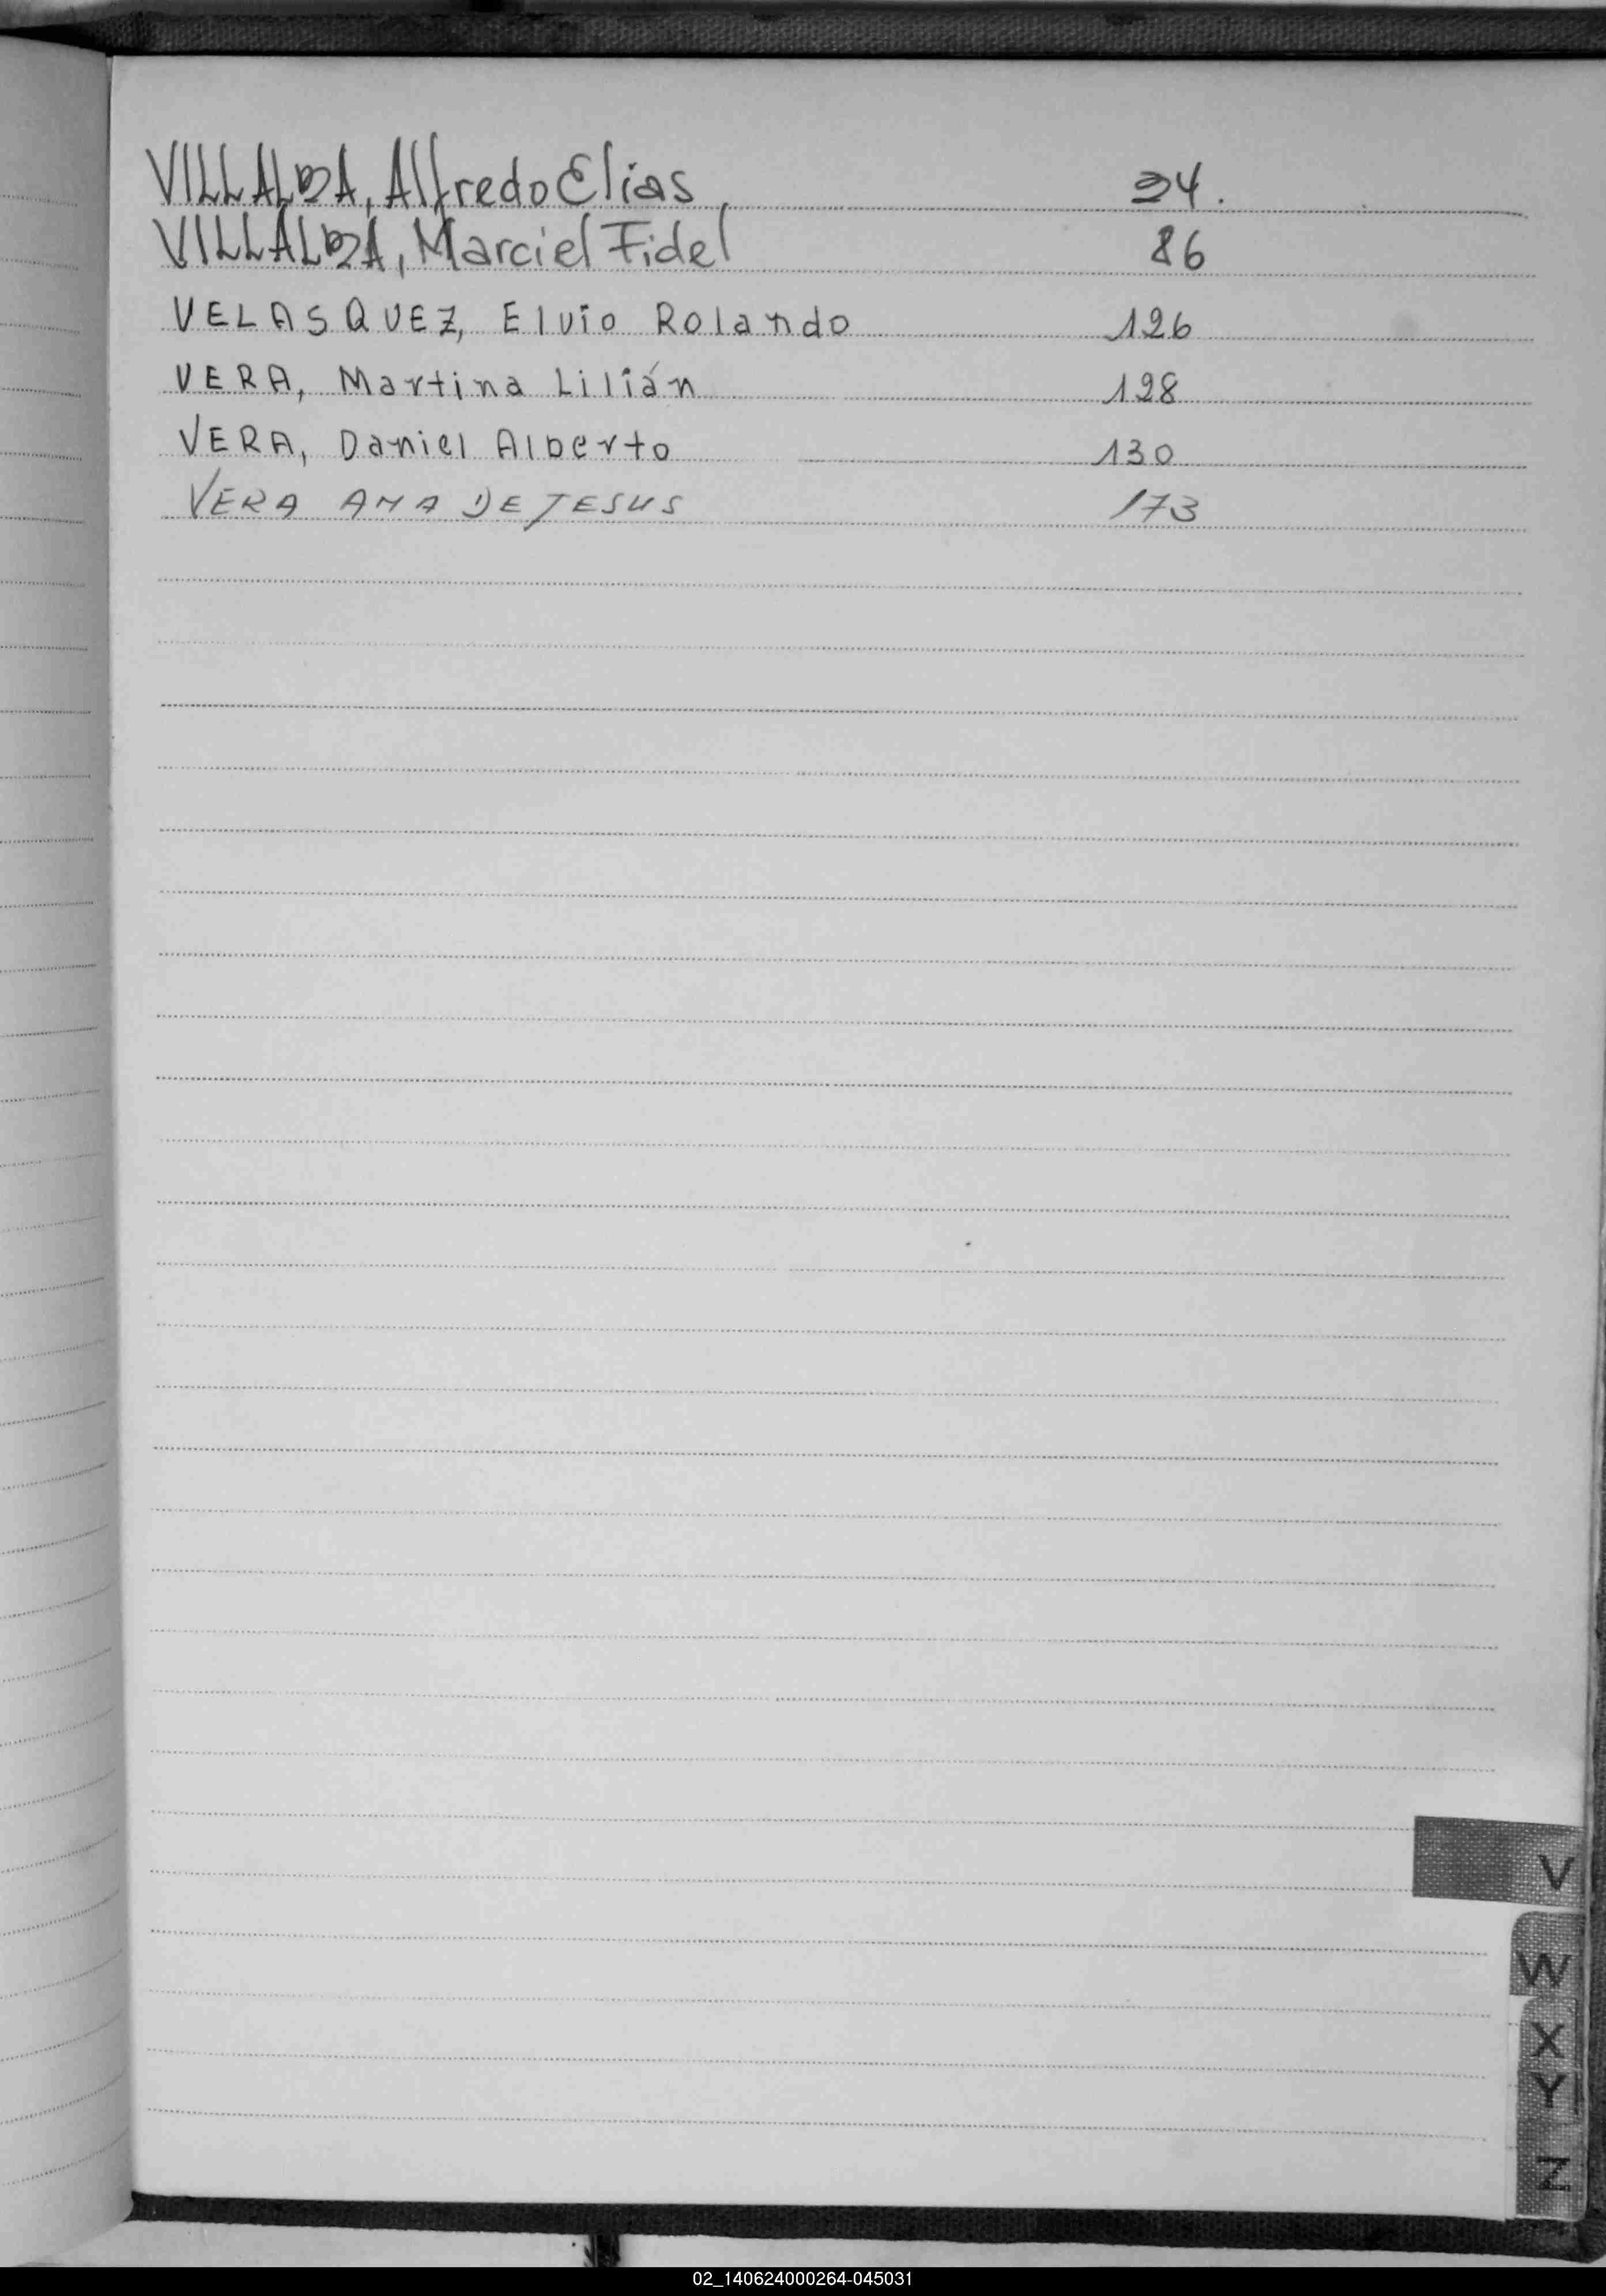 VILLALBA, Alfredo Elias 24.
VILLALBA, Marciel Fidel 86
VELASQUEZ, Elvio Rolando 126
VERA, Martina Lilián 128
VERA, Daniel Alberto 130
VERA ANA DE JESUS 173
V
W
X
Y
Z
02_140624000264-045031